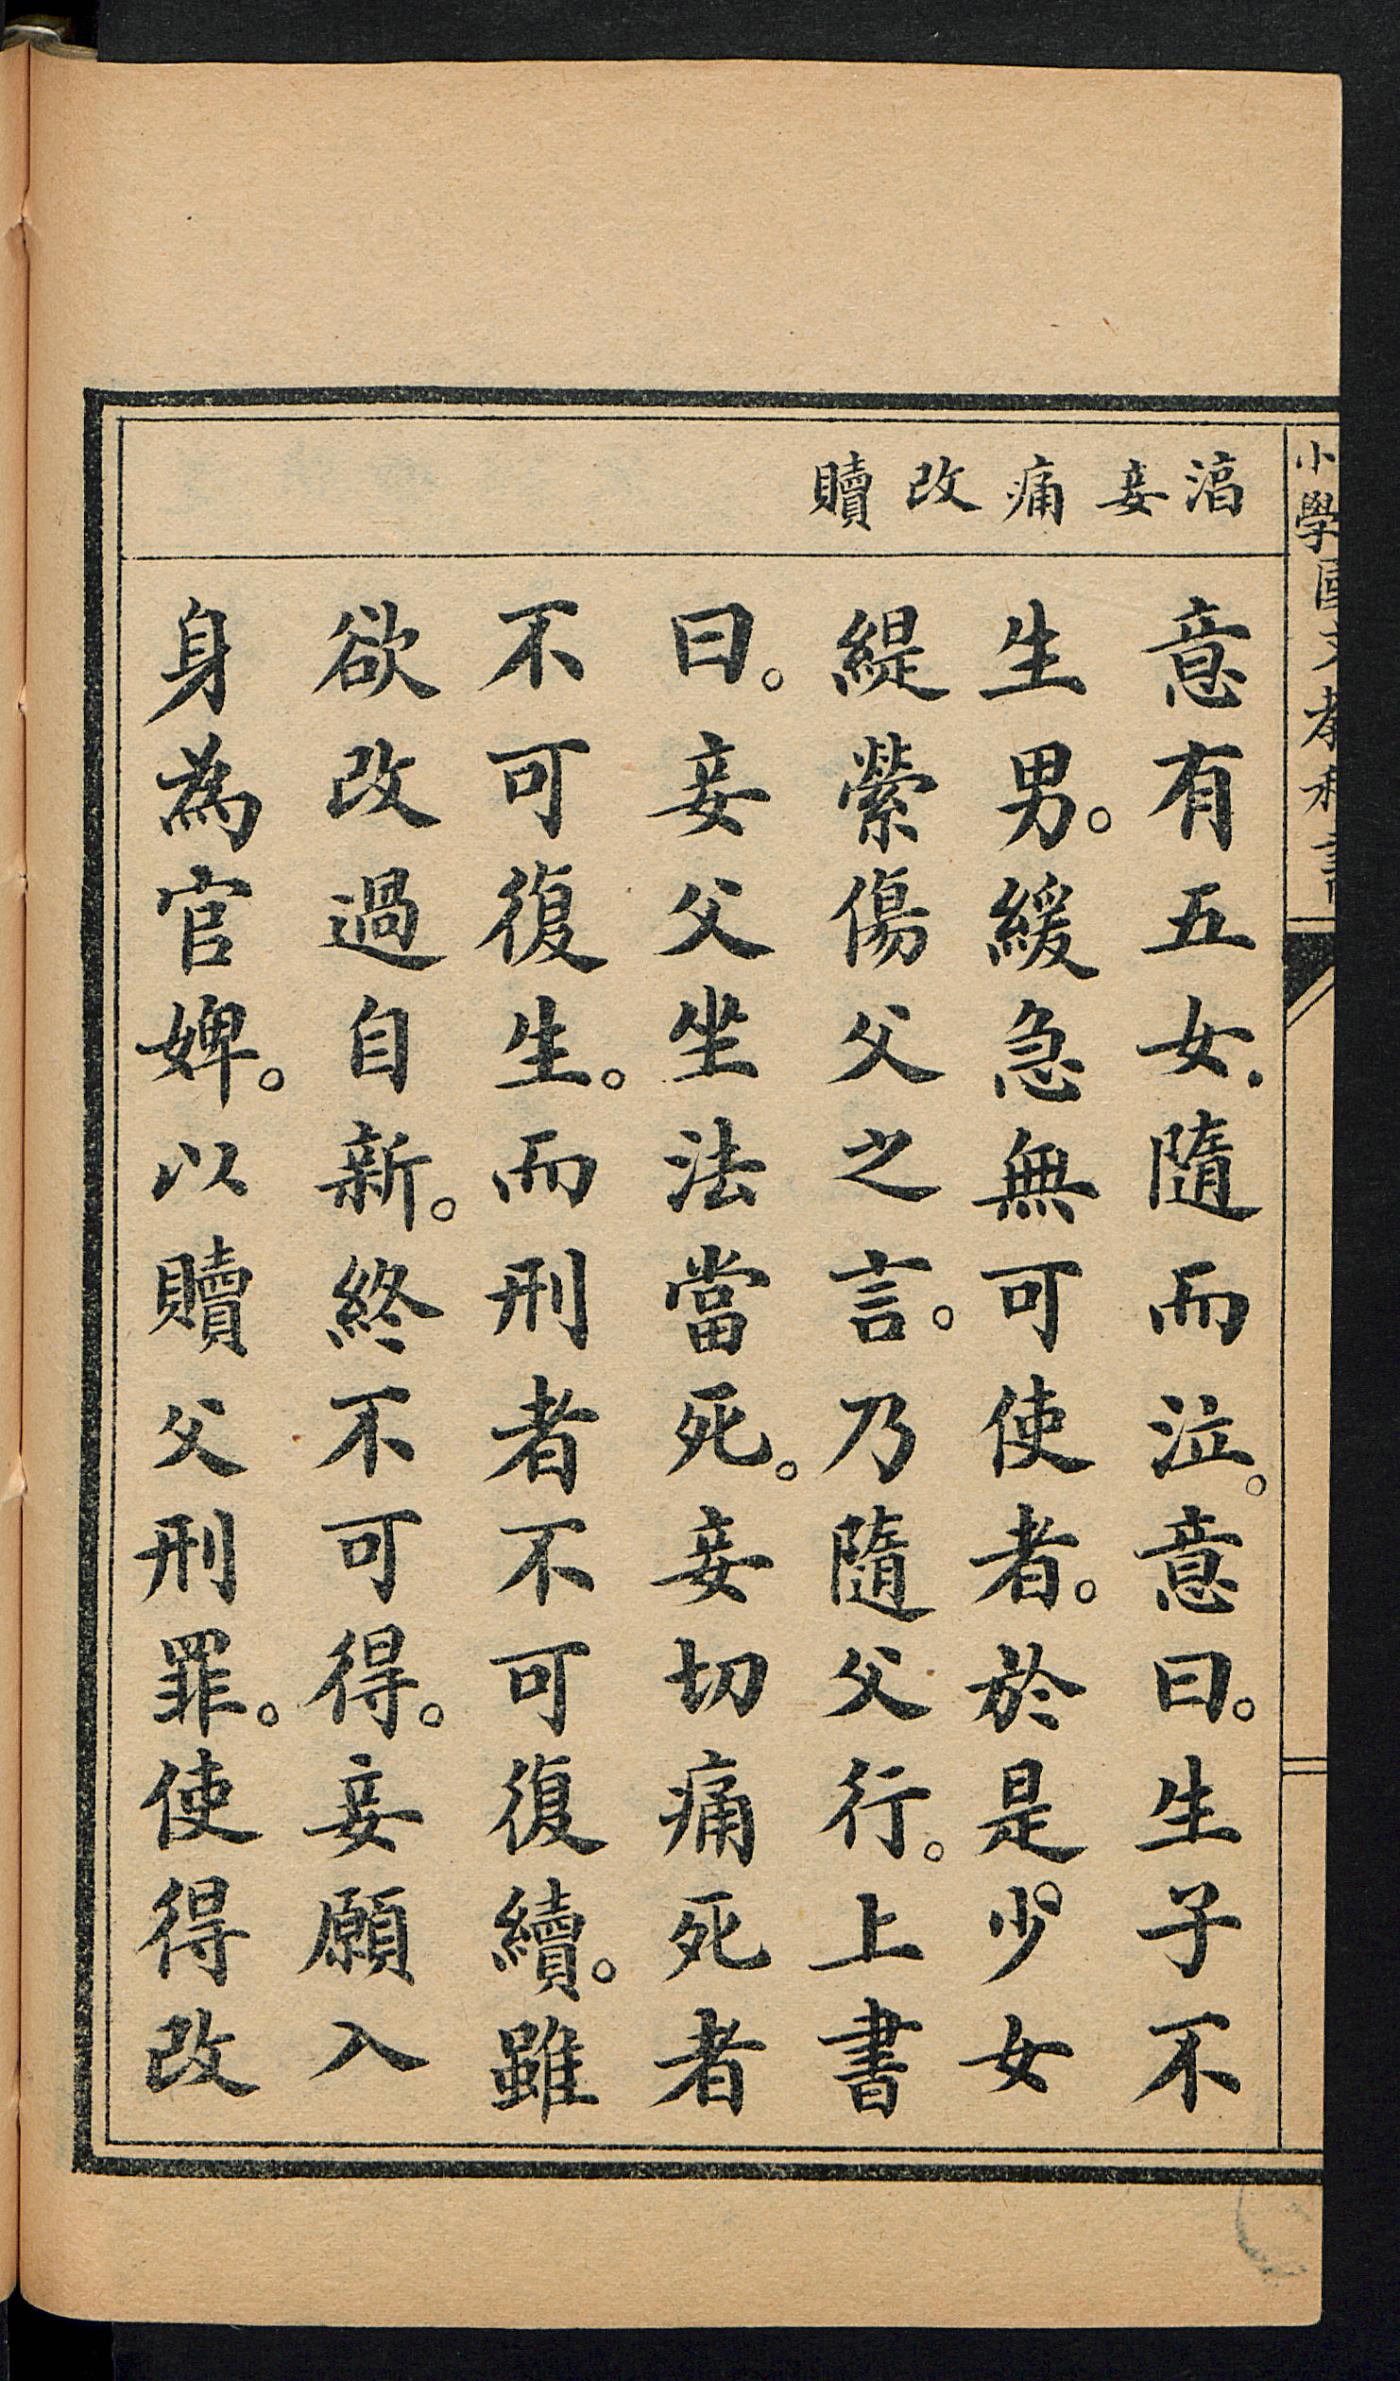 小學國文教科書
湻妾痛改贖
意有五女.隨而泣。意曰。生子不
生男。緩急無可使者。於是少女
緹縈傷父之言。乃隨父行。上書
曰。妾父坐法當死。妾切痛死者
不可復生。而刑者不可復續。雖
欲改過自新。終不可得。妾願入
身為官婢。以贖父刑罪。使得改